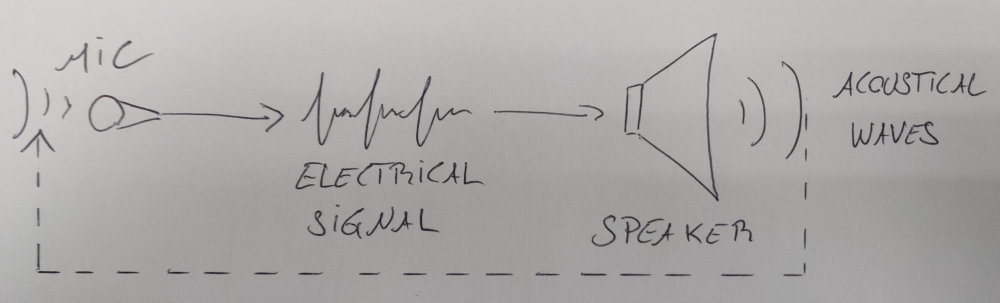 MiC
ELECTRiCAL
SiGNAL
SPEAKER
ACOUSTICAL
WAVES